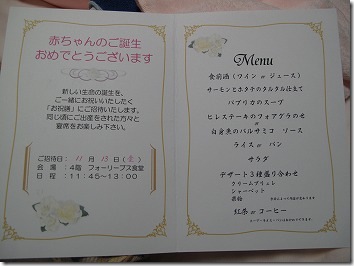 赤ちゃんのご誕生
おめでとうございます
新しい生命の誕生を、
ご一緒にお祝いいたしたく
「お祝膳」にご招待いたします。
同じ頃にご出産をされた方々と
宴席をお楽しみ下さい。
ご招待日： 11月 13日（金）
会 場：4階 フォーリーブス食堂
日 程：11:45～13:00
Menu
食前酒（ワイン or ジュース）
サーモンとホタテのタルタル仕立て
パプリカのスープ
ヒレステーキのフォアグラのせ
or
白身魚のバルサミコ ソース
ライス or パン
サラダ
デザート3種盛り合わせ
クリームブリュレ
シャーベット
果物
紅茶 or コーヒー